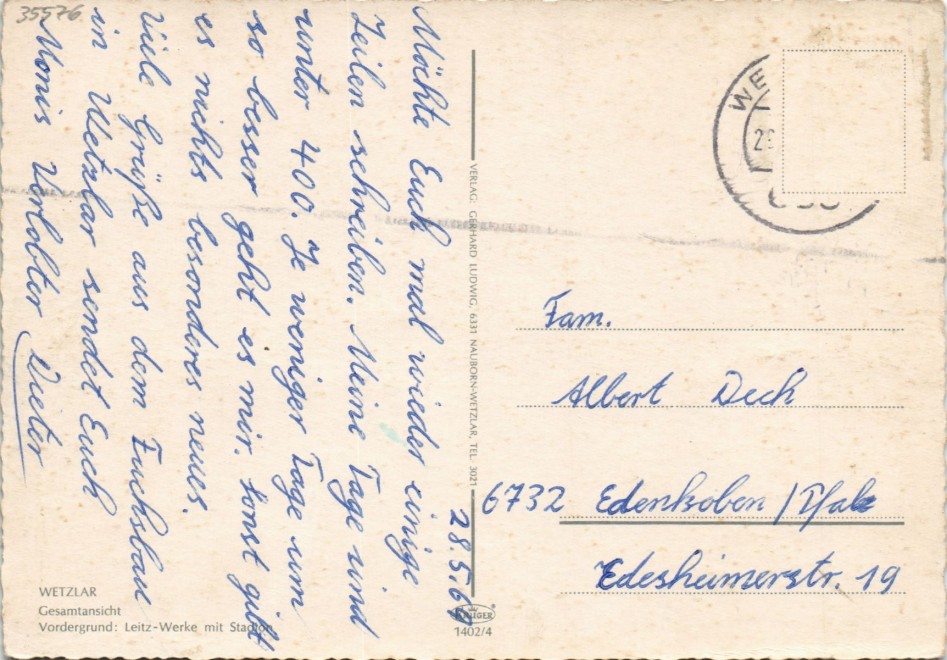 35576
28.5.6
Möchte Euch mal wieder einige
Zeilen schreiben. Meine Tage sind
unter 400. Je weniger Tage um
so besser geht es mir. Sonst gibt
es nichts besonderes neues.
Viele Grüße aus dem Fuchsbau
in Wetzlar sendet Euch
Monis Verlobter Dieter
VERLAG: GERHARD LUDWIG, 6331 NAUBORN-WETZLAR, TEL. 3021
WE
Fam.
Albert Dech
6732 Edenkoben/Pfalz
Edesheimerstr. 19
WETZLAR
Gesamtansicht
Vordergrund: Leitz-Werke mit Stadion
KRÜGER
1402/4